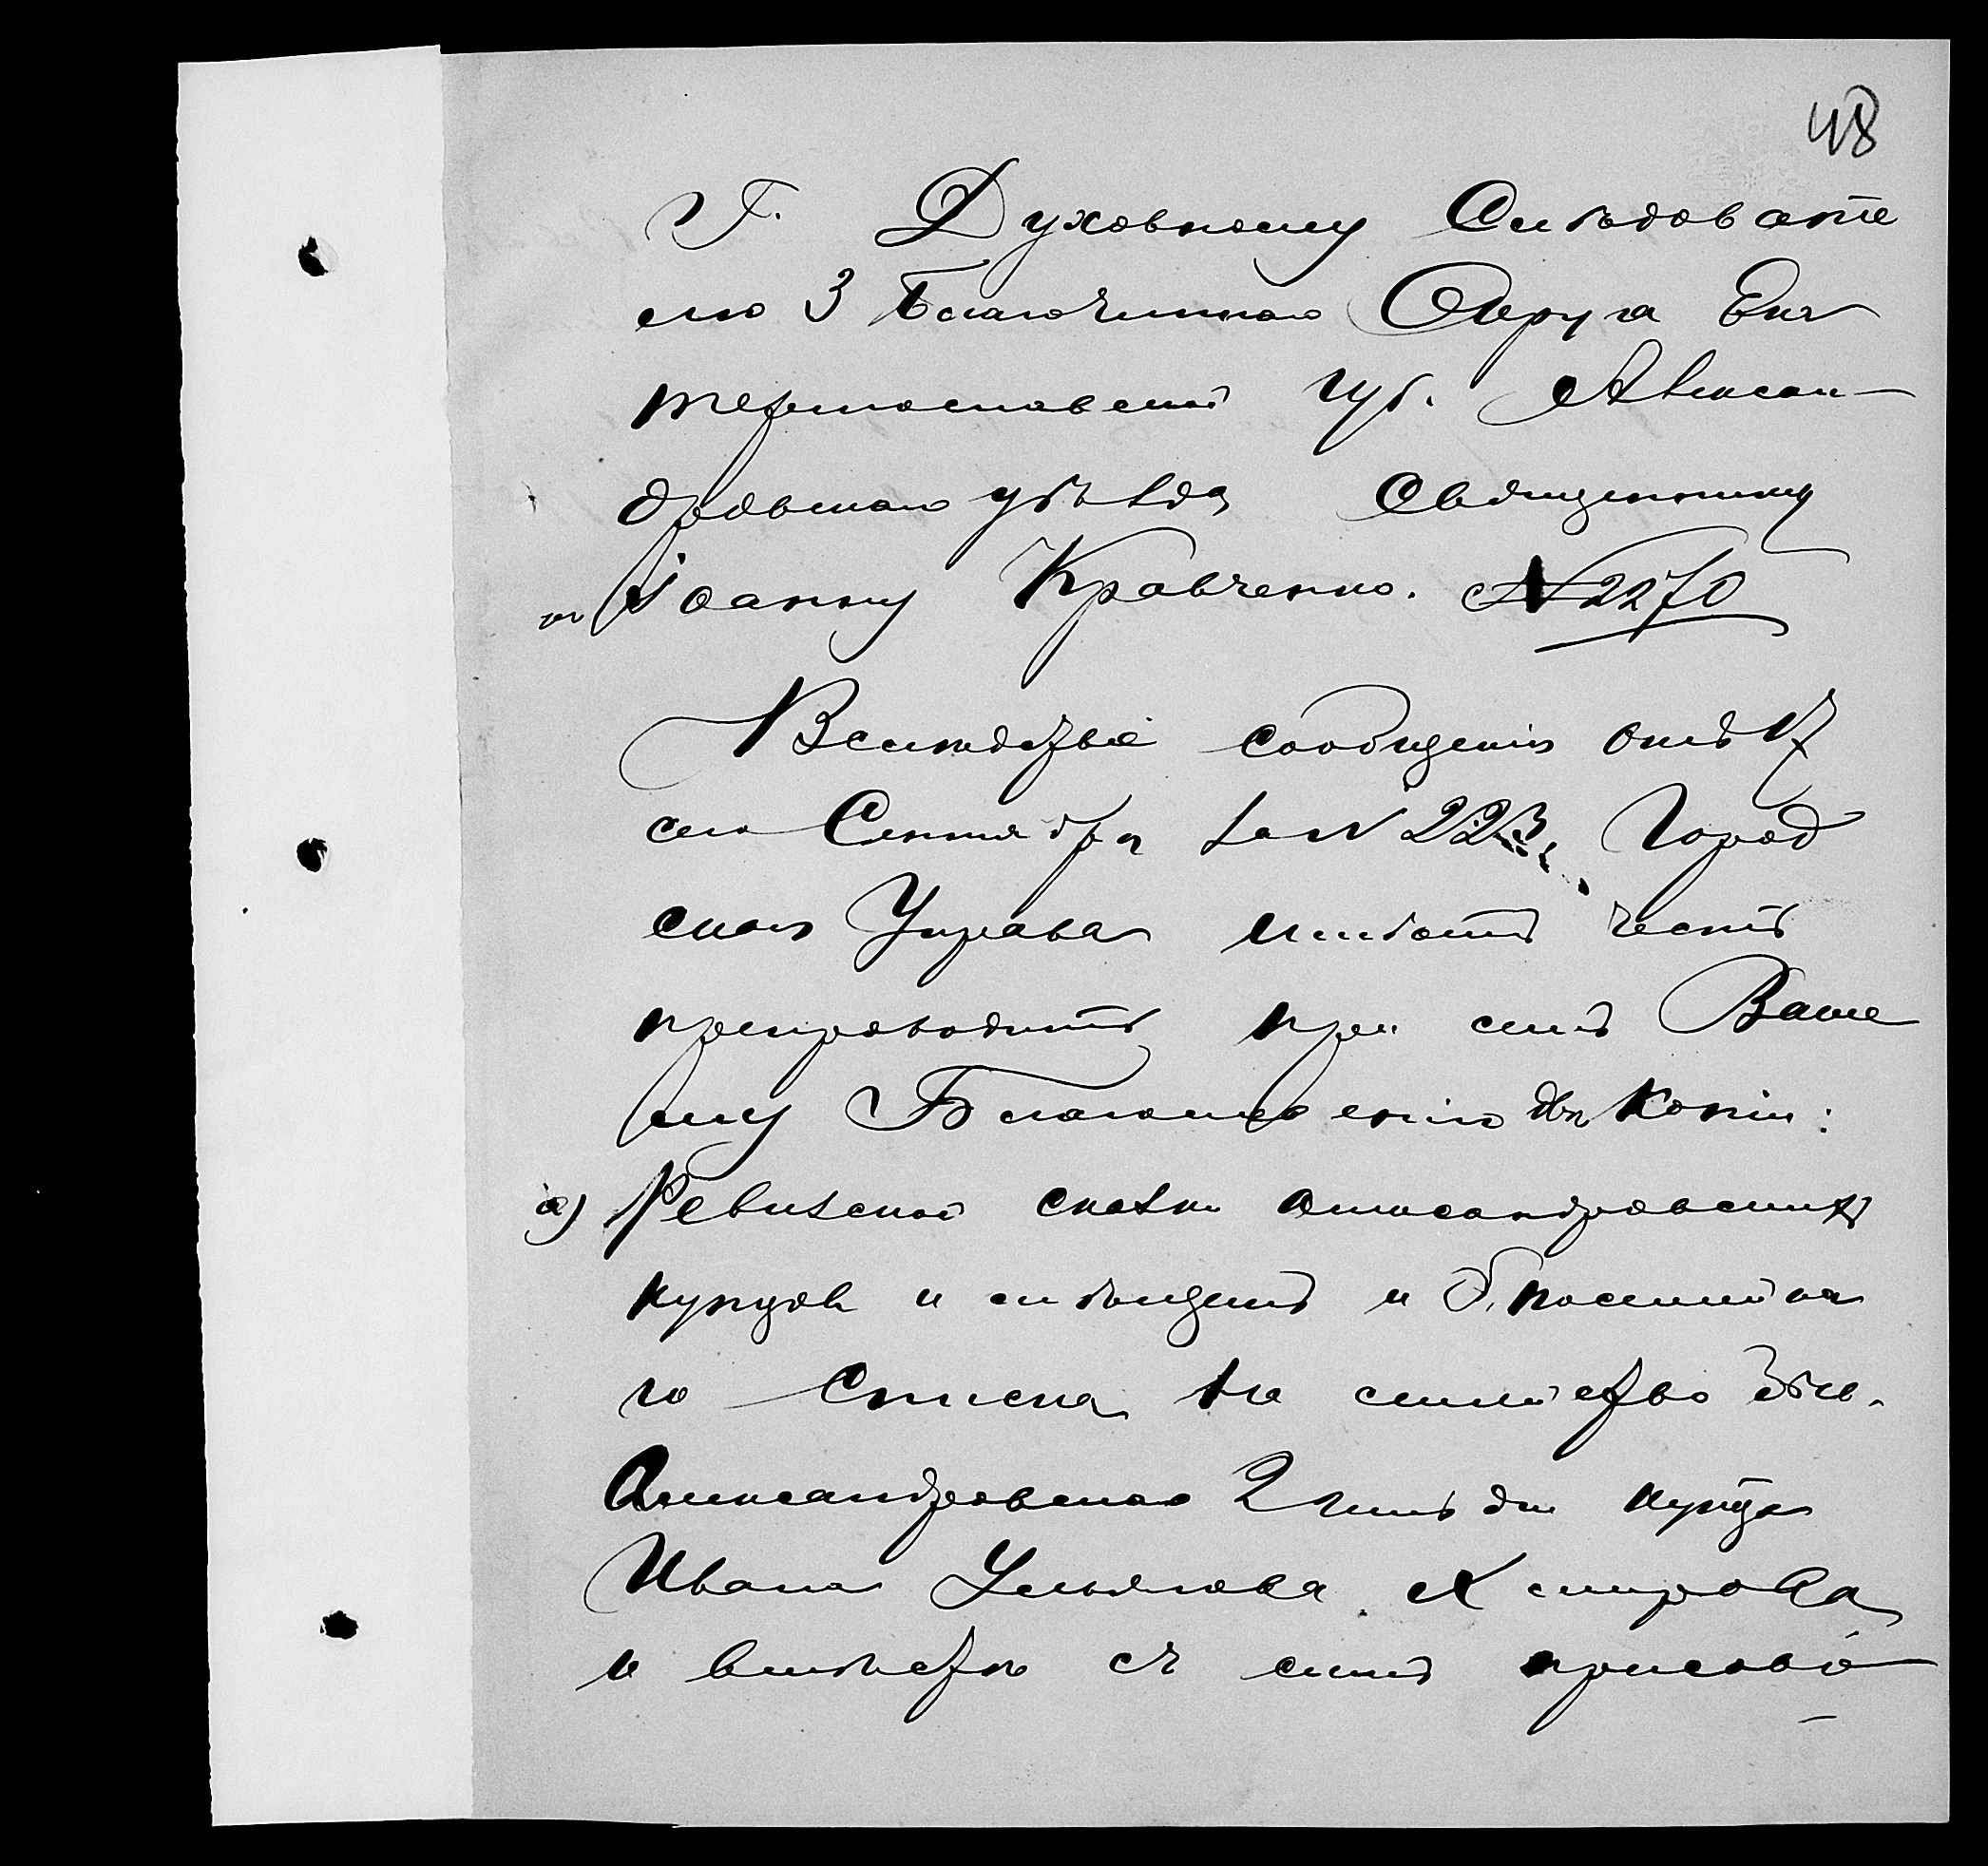 48
Г. Духовному Слѣдовате
лю 3 Благочиннаго Округа Ека
теринославской губ. Алексан-
дровскаго уѣзда Священнику
Іоанну Кравченко. № 2270
Вслѣдствіе сообщенія отъ 17
сего Сентября за № 223, Город
ская Управа имѣетъ честь
препроводить при семъ Ваше
му Благословенію двѣ копіи:
а) Ревизской сказки Александровскихъ
купцовъ и мѣщанъ и б, посемейна
го списка на семейство
Александровскаго 2 гильдіи купца
Ивана Ульянова
и вмѣстѣ съ симъ присово